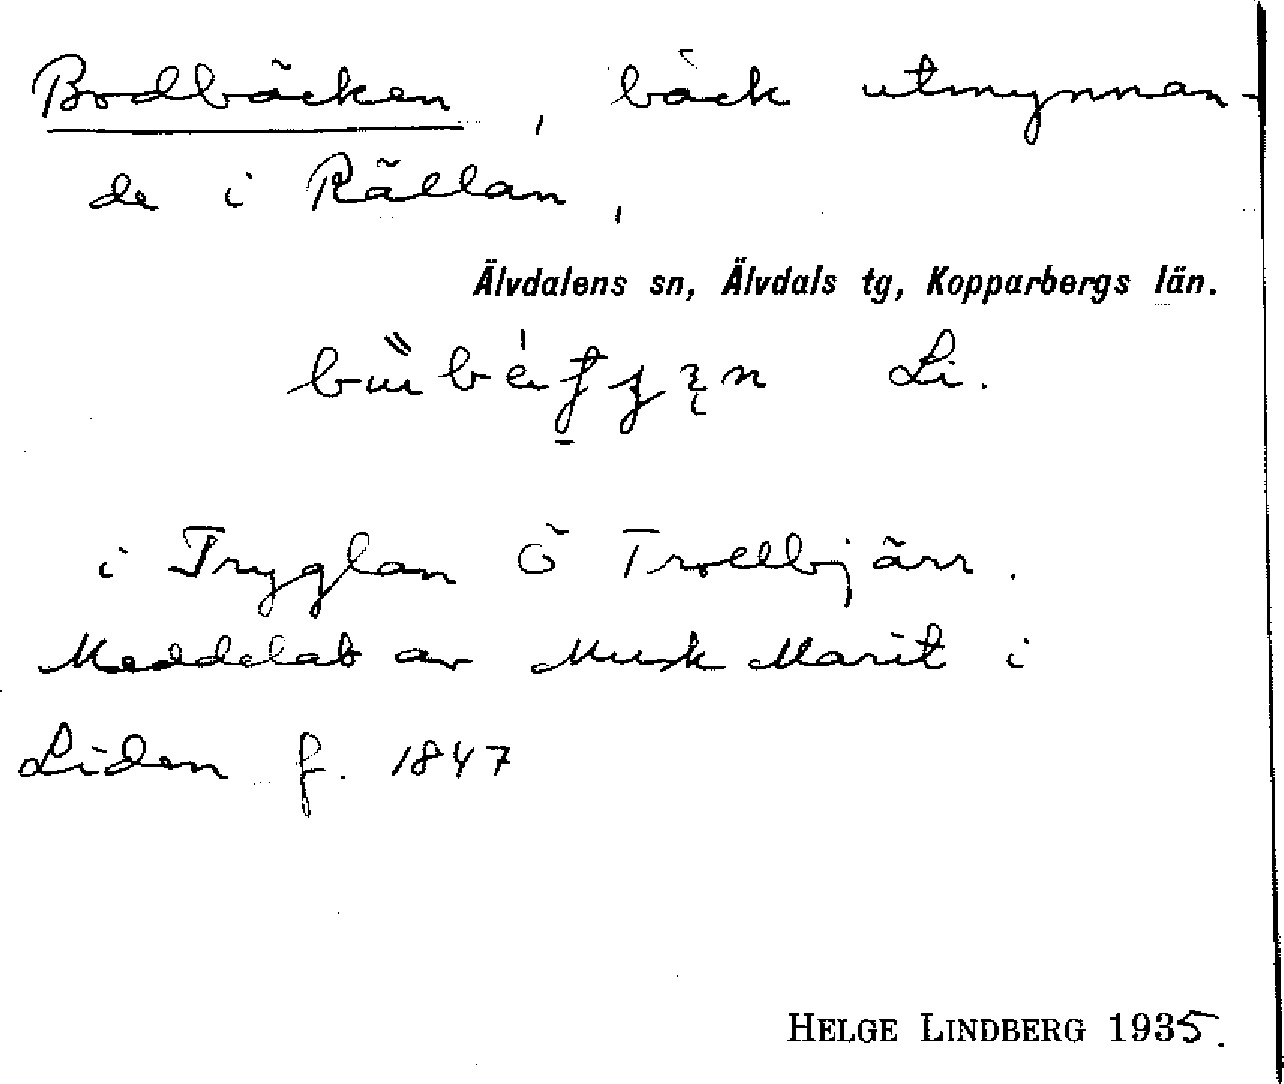 Bodbäcken, bäck utmynnan-
de i Rällan,
Älvdalens sn, Älvdals tg, Kopparbergs län.
Li.
i Tryglan Ö Trollbjärr.
Meddelat av Musk Marit i
Liden f. 1847
HELGE LINDBERG 1935.